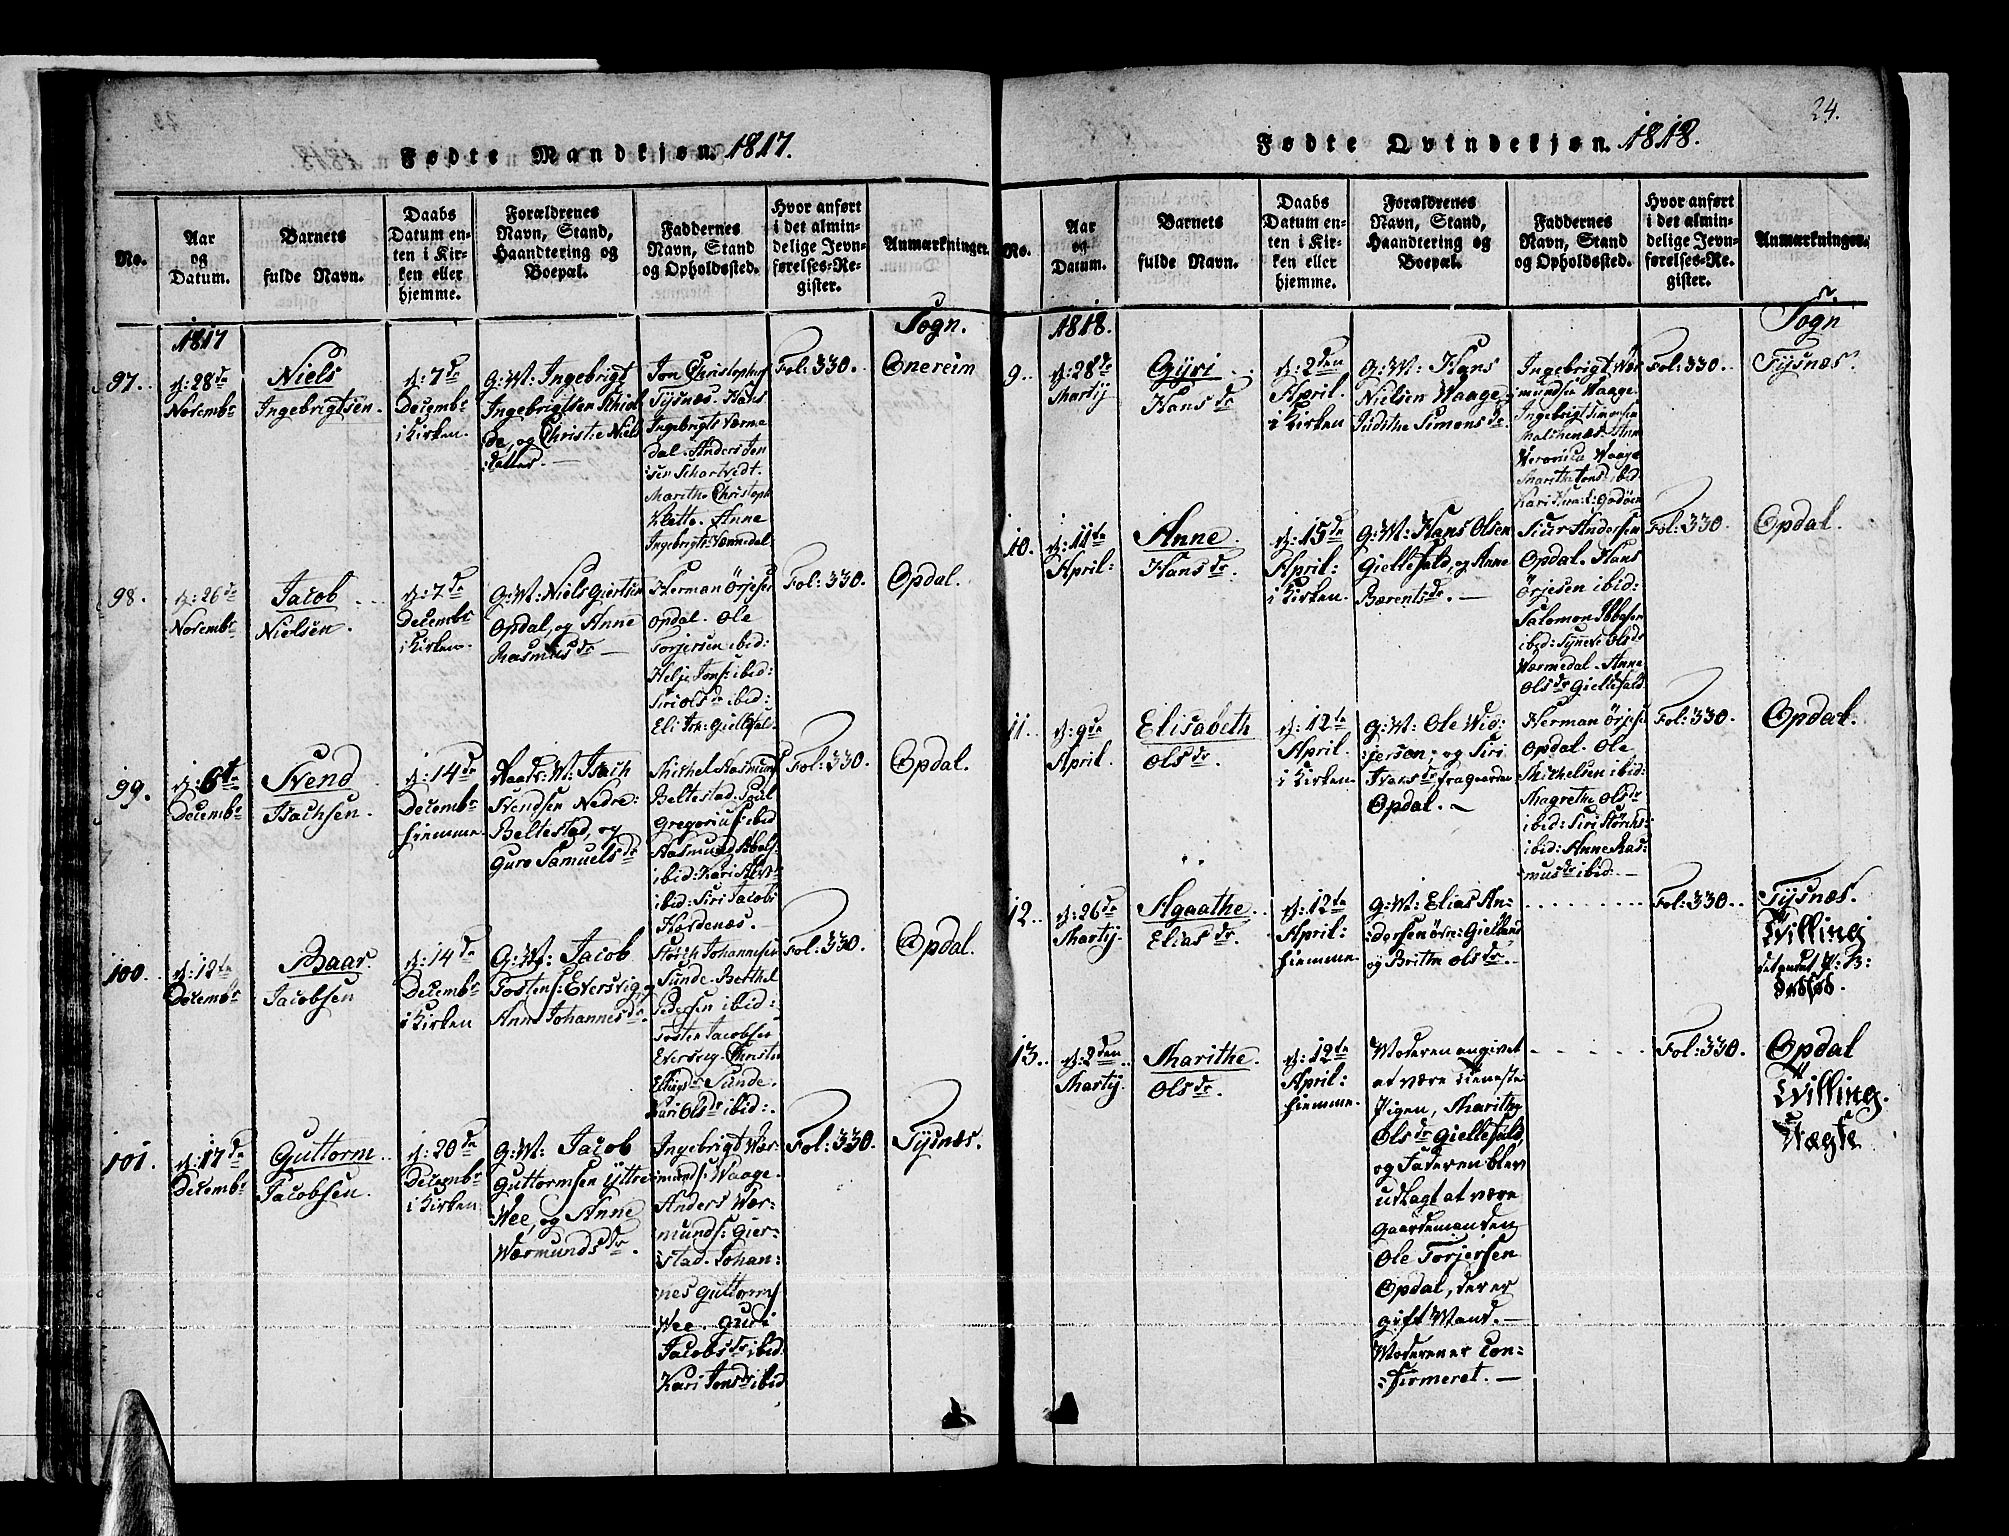 Fødte Mandkjøn. 1817.
No.
Aar
og
Datum.
Barnets
fulde Navn.
Daabs
Datum en-
ten i Kir-
ken eller
hjemme.
Forældrenes
Navn, Stand,
Haandtering og
Boepæl.
Faddernes
Navn, Stand
og Opholdssted.
Hvor anført
i det almin-
delige Jevn-
førelses-Re-
gister.
Anmærkninger.
1817
Sogn.
97.
d: 28de
Novembr
Niels
Ingebrigtsen.
d: 7de
Decembr
i Kirken.
G: M: Ingebrigt
Ingebrigtsen
og Christie Niels
datter.
Jon Christophers
Tysnæs. Hans
Ingebrigts Værme
dal. Anders Jen
sen
Marithe Christoph
Klette. Anne
Ingebrigts: Værmedal
Fol: 330.
Onereim
98.
d: 26de
Novembr
Jacob
Nielsen.
d: 7de
Decembr
i Kirken.
G: M: Niels Giertsen
Opdal, og Anne
Rasmusdr
Herman Örjesen
Opdal. Ole
Torjersen ibid:
Helje Jons: ibid:
Siri Olsdr ibid:
Eli
Fol: 330.
Opdal.
99.
d: 6te
Decembr
Svend
Isachsen.
d: 14de
Decembr
hiemme
M: Isach
Svendsen Nedre
Beltestad, og
Guro Samuelsdr
Michel Rasmuss
Beltestad. Poul
Gregorius: ibid
Rasmund
ibid: Kari
ibid: Siri Jacobs
Hordenæs.
Fol: 330.
Opdal.
100.
d: 12te
Decembr
Baar
Jacobsen
d: 14de
Decembr
i Kirken
G: M: Jacob
Tostens: Eversvig, og
Anne Johannesdr
Störch Johannesen
Sunde. Berthel
Pedersen ibid:
Tosten Jacobsen
Eversvig. Christi
Sunde.
Kari Olsdr ibid:
Fol: 330.
Opdal.
101.
d: 17de
Decembr
Guttorm
Jacobsen.
d: 20de
Decembr
i Kirken
G: M: Jacob
Guttormsen Yttre
Wee, og Anne
Wærmundsdr.
Ingebrigt Wær-
munds: Waage.
Anders Wær-
munds: Gier-
stad. Johan-
nes Guttorms
Wee. Guri
Jacobsdr ibid.
Kari Jonsdr ibid
Fol: 330.
Tysnæs.
24.
Fødte Qvindekjøn. 1818.
No.
Aar
og
Datum.
Barnets
fulde Navn.
Daabs
Datum en-
ten i Kir-
ken eller
hjemme.
Forældrenes
Navn, Stand,
Haandtering og
Boepæl.
Faddernes
Navn, Stand
og Opholdssted.
Hvor anført
i det almin-
delige Jevn-
førelses-Re-
gister.
Anmærkninger.
1818.
Sogn
9.
d: 28de
Martij
Gyri
Hansdr
d: 2den
April.
i Kirken
G: M: Hans
Nielsen Waage
Judithe Simonsdr
Ingebrigt Wær
mundsen Waage.
Ingebrigt Simonsen
Malchenæs. Ann
Veronica Waage
Marithe Jons: ibid
Kari
Fol: 330.
Tysnæs.
10.
d: 11te
April:
Anne
Hansdr.
d: 15de
April:
i Kirken.
G: M: Hans Olsen
Giellefald, og Anne
Bærentsdr. —
Siur Andersen
Opdal. Hans
Örjesen ibid:
Salomon Ibbesen
ibid: Synneve Olsdr
Wærmedal. Anne
Olsdr Giellefald.
Fol: 330.
Opdal.
11.
d: 9de
April.
Elisabeth
Olsdr.
d: 12te
April.
i Kirken
G: M: Ole Wig-
jersen; og Siri
Ivarsdr fragaarden
Opdal. —
Herman Örjesen
Opdal. Ole
Michelsen ibid:
Magrethe Olsdr
ibid: Siri Störchs:
ibid: Anne Ras-
musdr ibid: —
Fol: 330.
Opdal.
12.
d: 26de
Martij.
Agaathe
Eliasdr.
d: 12te
April:
hiemme
G: M: Elias An-
dersen
og Britha Olsdr. —
Fol: 330.
Tysnæs.
Tvilling
det andet
dødfød.
13.
d: 2den
Martij.
Marithe
Olsdr.
d: 12te
April:
hiemme
Moderen angivet
at være tieneste
Pigen, Marithe
Olsdr Giellefald,
og Faderen blev
udlagt at være
Gaardemanden
Ole Torjersen
Opdal, der er
gift Mand. —
Moderen er Con-
firmeret. —
Fol: 330.
Opdal
Tvilling.
Uægte